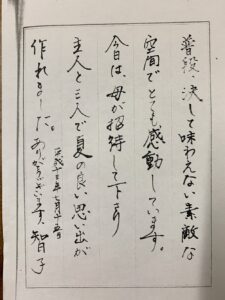 普段、決して味わえない素敵な
空間でとても感動しています。
今日は、母が招待して下さり
主人と三人で夏の良い思い出が
作れました。ありがとうございます。智子
平成十三年七月十五日